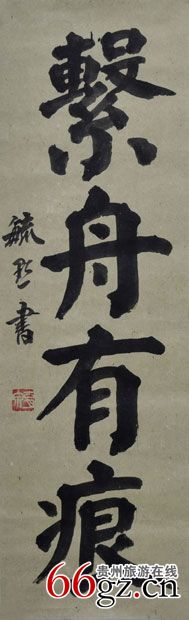 繫舟有痕
毓形書
贵州旅游在线
66gz.cn